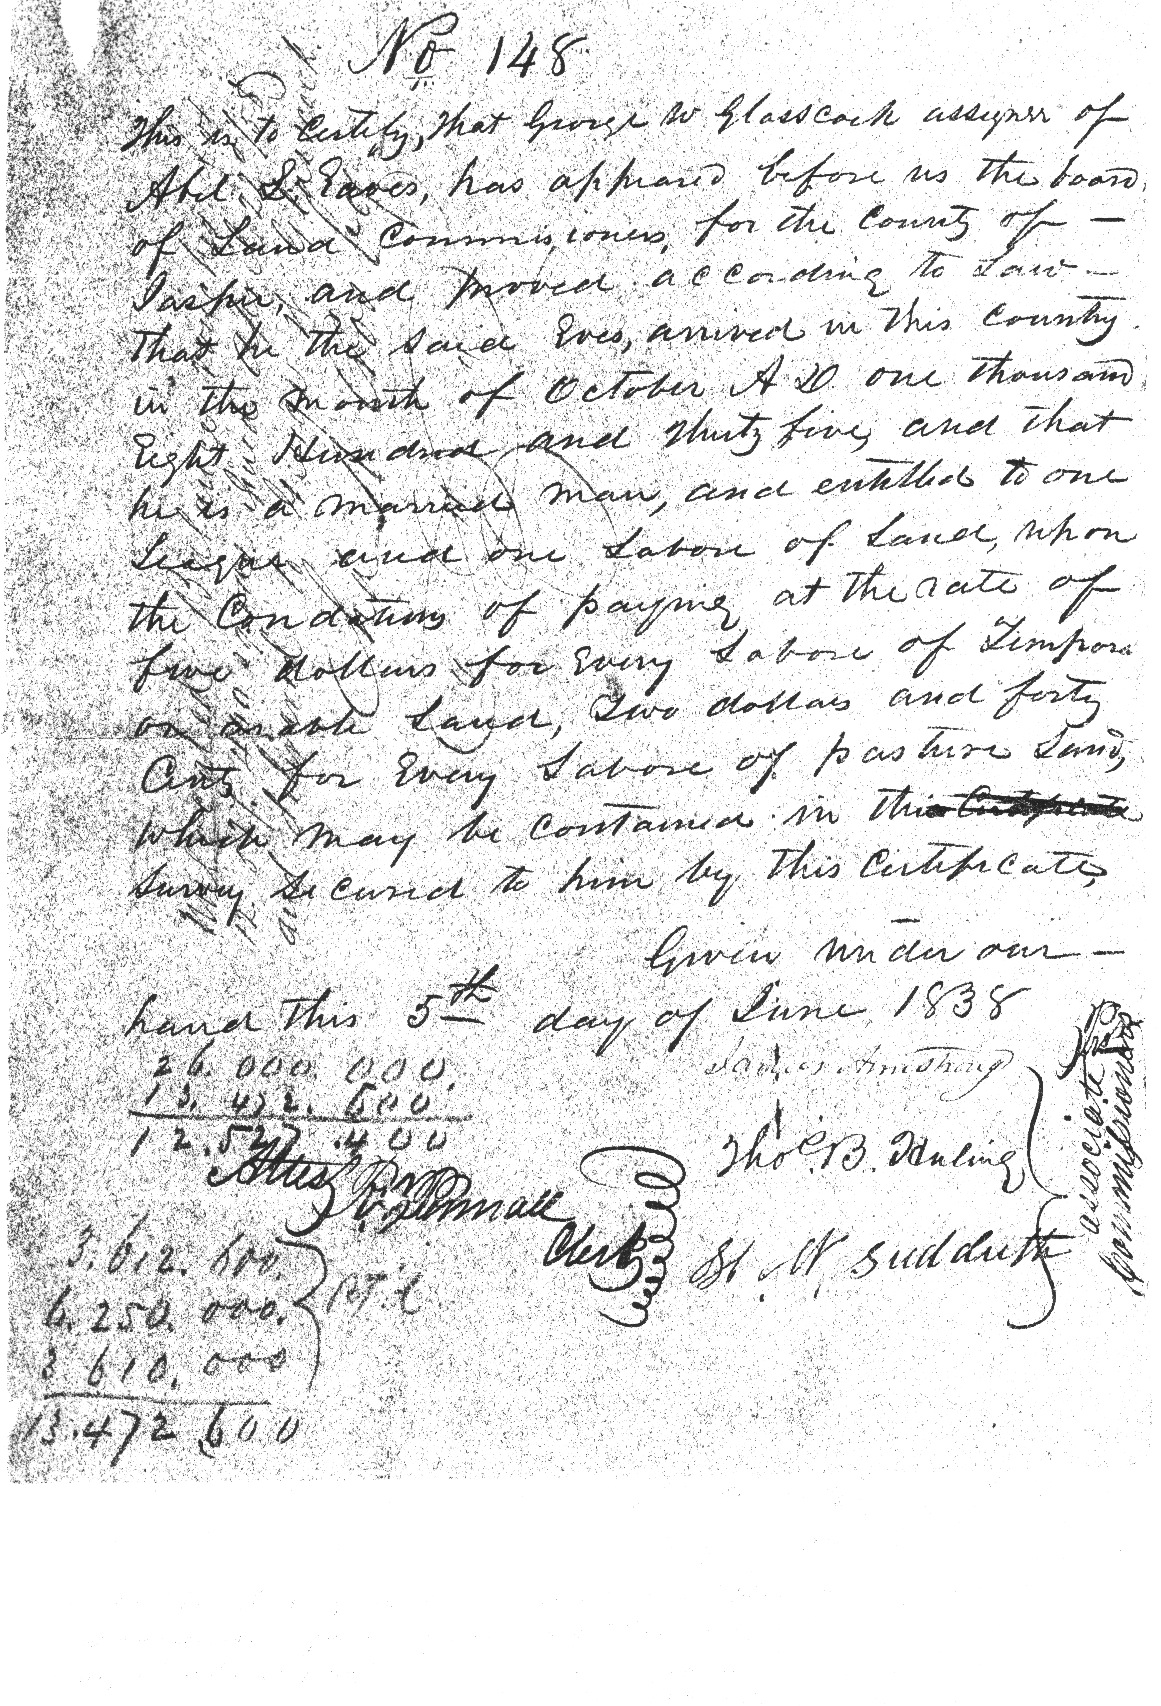 No 148
This is to Certify, that George W Glasscock assignee of
Abel. S. Eaves, has appeared before us the board
of Land Commissioners, for the County of —
Jasper, and proved according to Law —
that he the said Eves, arrived in this Country
in the month of October A D one thousand
Eight Hundred and thirty five, and that
he is a married man, and entitled to one
League and one Labore of Land, upon
the Conditions of paying at the rate of
five dollars for Every Labore of Tempora
or arable Land, Two dollars and forty
Cents for Every Labore of pasture Land,
which may be contained in this Certificate
survey secured to him by this Certificate,
Given under our —
hand this 5th day of June 1838
26.000.000.
13.472.600
12.527.400
James Armstrong
Thos. B. Huling
Attest
Clerk
St. W. Sudduth
associate
Commissioners
3.612.600.
6.250.000.
3.610.000
13.472.600